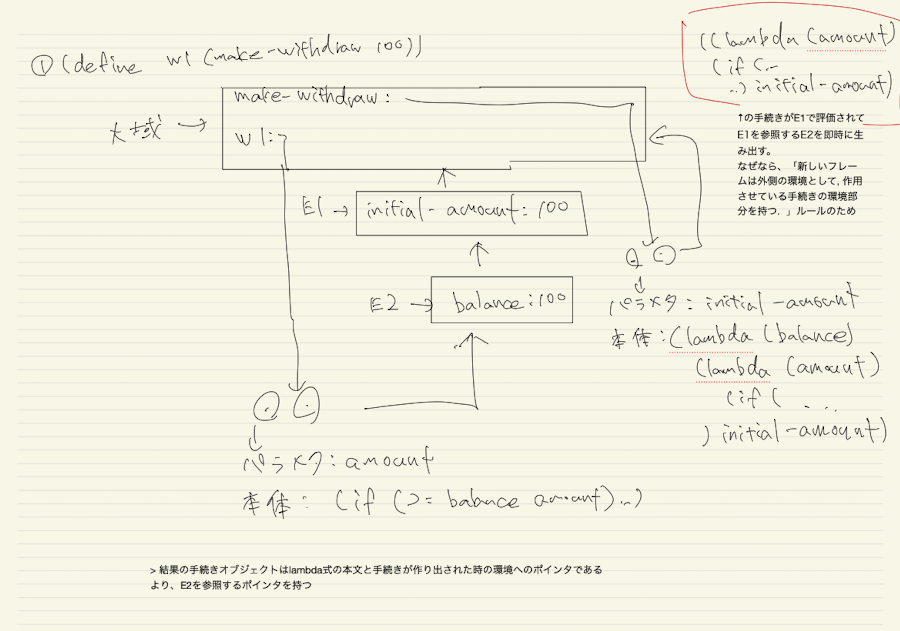 ① (define W1 (make-withdraw 100))
((lambda (amount)
(if (..
..) initial-amount)
↑の手続きがE1で評価されて
E1を参照するE2を即時に生
み出す。
なぜなら、「新しいフレー
ムは外側の環境として, 作用
させている手続きの環境部
分を持つ. 」ルールのため
大域 →
make-withdraw:
W1:
E1 → initial-amount: 100
E2 → balance: 100
パラメタ: initial-amount
本体: (lambda (balance)
(lambda (amount)
(if (
....
) initial-amount)
パラメタ: amount
本体: (if (>= balance amount)..)
> 結果の手続きオブジェクトはlambda式の本文と手続きが作り出された時の環境へのポインタである
より、E2を参照するポインタを持つ